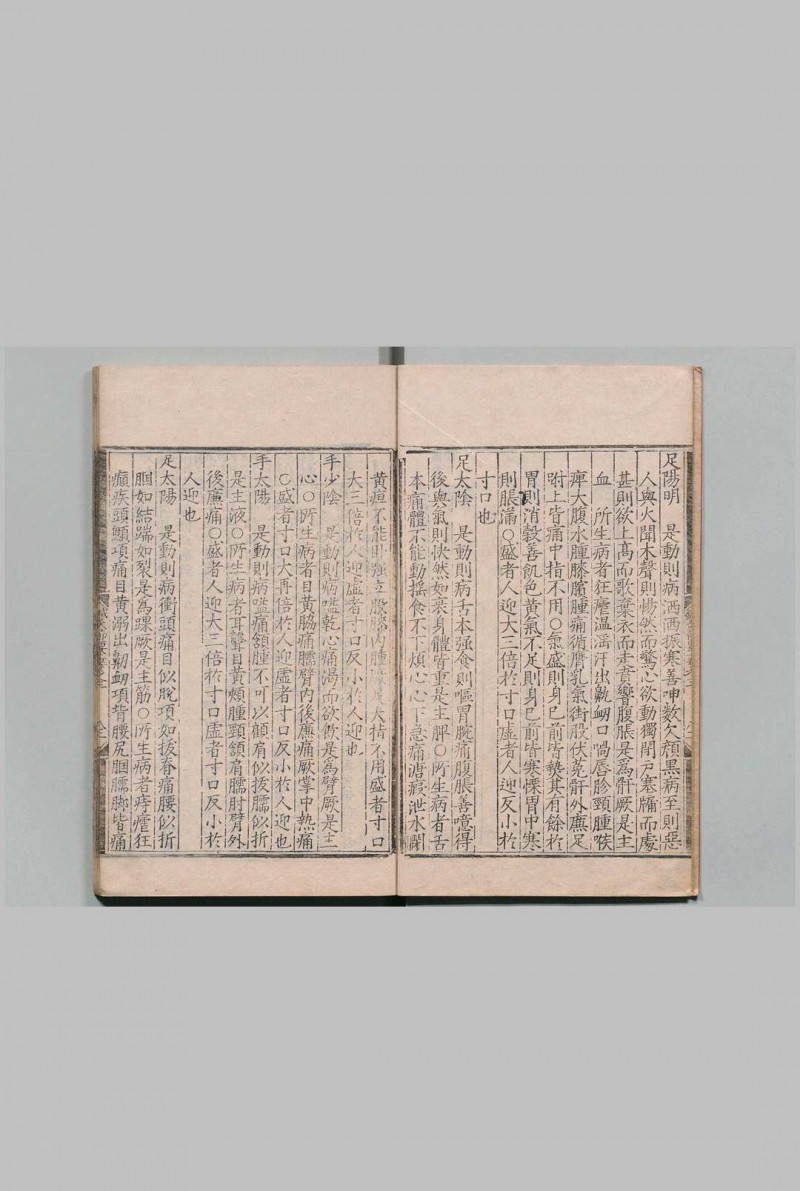 足陽明　是動則病洒洒振寒善呻数欠顔黒病至則惡
人與火聞木聲則惕然而驚心欲動獨閉戶塞牖而處
甚則欲上髙而歌棄衣而走賁響腹脹是爲骭厥是主
血　所生病者狂瘧温滛汗出鼽衂口喎唇胗頸腫喉
痺大腹水腫膝臏腫痛循膺乳氣街股伏菟骭外廉足
跗上皆痛中指不用○氣盛則身已前皆熱其有餘於
胃則消糓善飢色黄氣不足則身已前皆寒慄胃中寒
則脹滿○盛者人迎大三倍於寸口虚者人迎反小於
寸口也
足太陰　是動則病舌本强食則嘔胃脘痛腹脹善噫得
後與氣則快然如衰身體皆重是主脾○所生病者舌
本痛體不能動揺食不下煩心心下急痛溏瘕泄水閉
黄疸不能卧强立股膝内腫厥足大指不用盛者寸口
大三倍於人迎虚者寸口反小於人迎也
手少陰　是動則病嗌乾心痛渴而欲飲是爲臂厥是主
心○所生病者目黄脇痛臑臂内後廉痛厥掌中熱痛
○盛者寸口大再倍於人迎虚者寸口反小於人迎也
手太陽　是動則病嗌痛頷腫不可以顧肩似拔臑似折
是主液○所生病者耳聾目黄頰腫頸頷肩臑肘臂外
後廉痛○盛者人迎大三倍於寸口虚者寸口反小於
人迎也
足太陽　是動則病衝頭痛目似脫項如拔脊痛腰似折
膕如結踹如裂是爲踝厥是主筋○所生病者痔瘧狂
癲疾頭顖項痛目黄淚出鼽衂項背腰尻膕臑脚皆痛